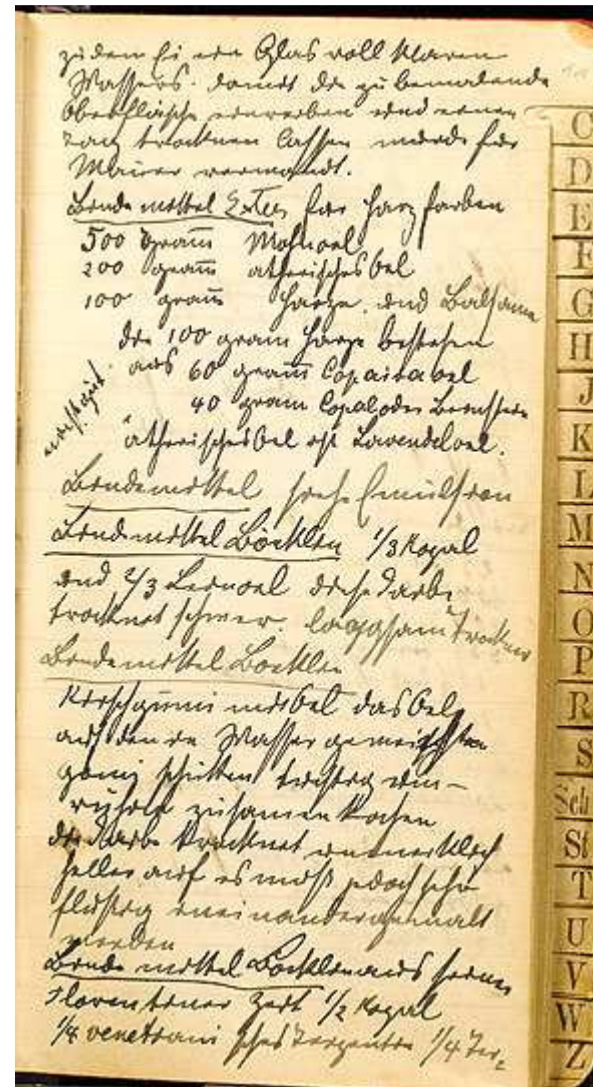 zu dem Ei ein Glas voll klaren
Wassers. damit die zu bemalende
Oberfläche einreiben und einen
Tag trocknen lassen wurde für
verwandt.
Bindemittel für Harzfarben
500 gram Mohnoel
200 gram ätherisches Oel
100 gram Harze und Balsame
die 100 gram Harze bestehen
aus 60 gram Copaivaoel
40 gram Copal oder Bernstein
ätherisches Oel ist Lavendeloel.
Bindemittel siehe Emulsion
Bindemittel Böcklin 1/3 Kopal
und 2/3 Leinoel diese Farbe
trocknet schwer. langsam
Bindemittel Böcklin
Kirschgumi mit Oel das Oel
auf den in Wasser geweichten
gumi schütten tüchtig um-
rühren zusamen kochen
die Farbe trocknet unmerklich
heller auf es muß jedoch sehr
flüssig ineinandergemalt
werden
Bindemittel Böcklin aus seiner
Florentiner Zeit 1/2 Kopal
1/4 venetianisches Terpentin 1/4 Ter-
C
D
E
F
G
H
J
K
L
M
N
O
P
R
S
Sch
St
T
U
V
W
Z